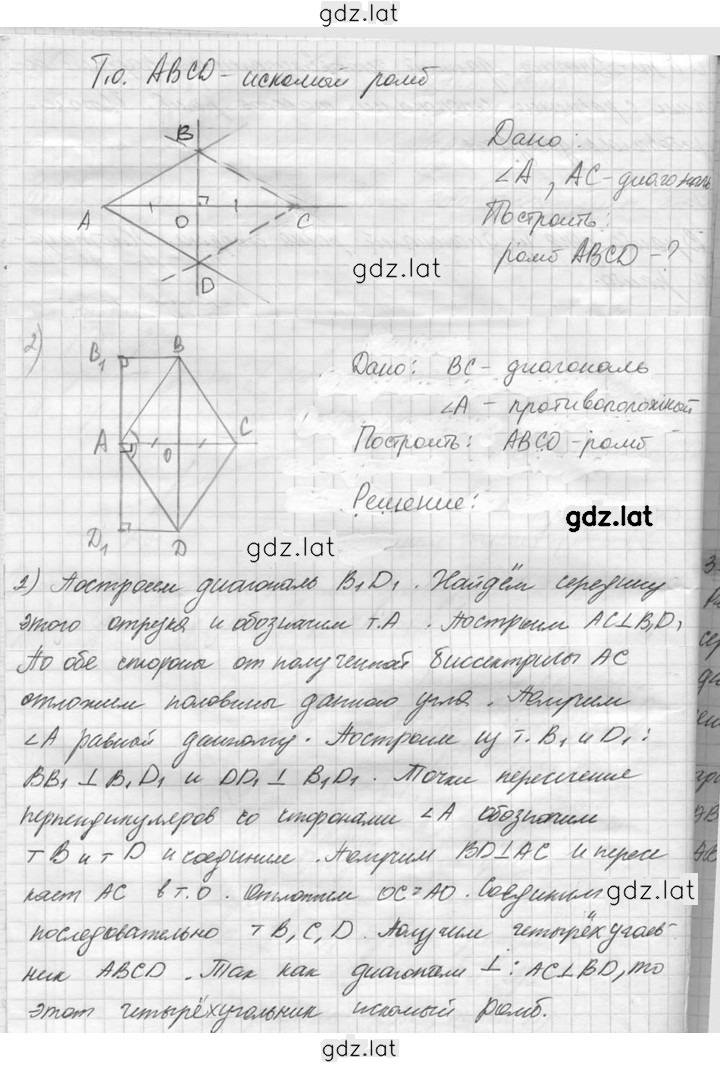 gdz.lat
Т.о. ABCD - искомый ромб
B
A
O
C
D
Дано:
∠A, AC - диагональ
Построить:
ромб ABCD - ?
gdz.lat
2)
B₁ B
A O C
D₁ D
Дано: BC - диагональ
∠A - противоположной
Построить: ABCD - ромб
Решение:
gdz.lat
gdz.lat
2) Построем диагональ B₁D₁. Найдём середину
этого отрезка и обозначим т.A. Построим AC⊥B₁D₁
По обе стороны от полученной биссектрисы AC
отложим половины данного угла. Получим
∠A равный данному. Построим из т. B₁ и D₁:
BB₁ ⊥ B₁D₁ и DD₁ ⊥ B₁D₁. Точки пересечение
перпендикуляров со сторонами ∠A обозначим
т B и т D и соединим. Получим BD⊥AC и пересе
кает AC в т.O. Отложим OC=AO. Соединим
gdz.lat
последовательно т B, C, D. Получим четырёхуголь-
ник ABCD. Так как диагонали ⊥: AC⊥BD, то
этот четырёхугольник искомый ромб.
gdz.lat